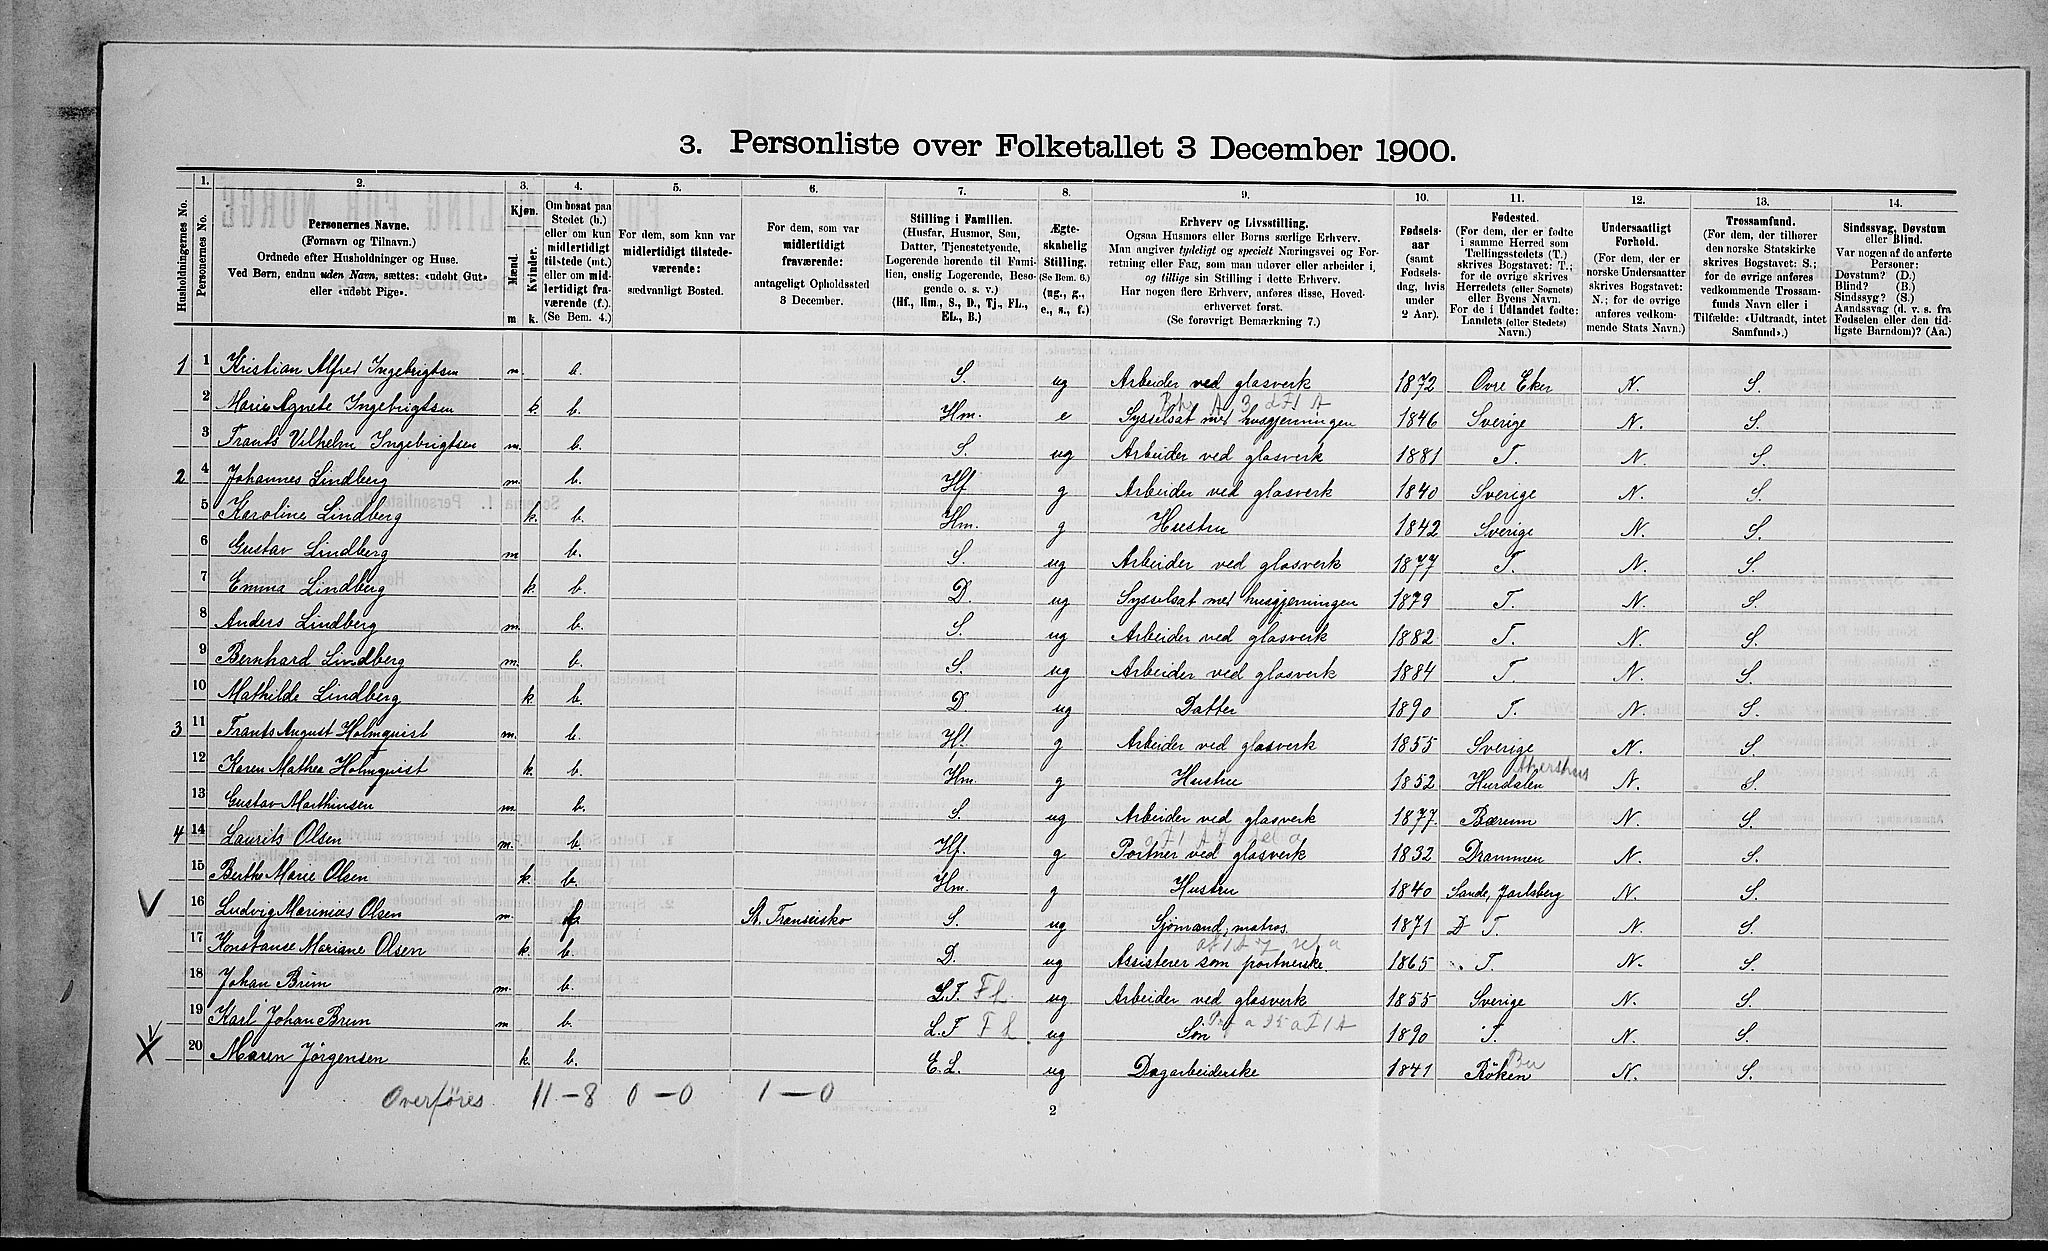 3. Personliste over Folketallet 3 December 1900.
Husholdningernes No.
1. Personernes No.
2. Personernes Navne. (Fornavn og Tilnavn.) Ordnede efter Husholdninger og Huse. Ved Børn, endnu uden Navn, sættes: «udøbt Gut» eller «udøbt Pige».
3. Kjøn. Mænd. Kvinder. m k.
4. Om bosat paa Stedet (b.) eller om kun midlertidigt tilstede (mt.) eller om midlertidigt fraværende (f.). (Se Bem. 4.)
5. For dem, som kun var midlertidigt tilstedeværende: sædvanligt Bosted.
6. For dem, som var midlertidigt fraværende: antageligt Opholdssted 3 December.
7. Stilling i Familien. (Husfar, Husmor, Søn, Datter, Tjenestetyende, Logerende hørende til Familien, enslig Logerende, Besøgende o. s. v.) (Hf., Hm., S., D., Tj., FL., EL., B.)
8. Ægteskabelig Stilling. (Se Bem. 6.) (ug., g., e., s., f.)
9. Erhverv og Livsstilling. Ogsaa Husmors eller Børns særlige Erhverv. Man angiver tydeligt og specielt Næringsvei og Forretning eller Fag, som man udøver eller arbeider i, og tillige sin Stilling i dette Erhverv. Har nogen flere Erhverv, anføres disse, Hovederhvervet først. (Se forøvrigt Bemærkning 7.)
10. Fødselsaar (samt Fødselsdag, hvis under 2 Aar).
11. Fødested. (For dem, der er fødte i samme Herred som Tællingsstedets (T.) skrives Bogstavet: T.; for de øvrige skrives Herredets (eller Sognets) eller Byens Navn. For de i Udlandet fødte: Landets (eller Stedets) Navn.)
12. Undersaatligt Forhold. (For dem, der er norske Undersaatter skrives Bogstavet: N.; for de øvrige anføres vedkommende Stats Navn.)
13. Trossamfund. (For dem, der tilhører den norske Statskirke skrives Bogstavet: S.; for de øvrige anføres vedkommende Trossamfunds Navn eller i Tilfælde: «Udtraadt, intet Samfund».)
14. Sindssvag, Døvstum eller Blind. Var nogen af de anførte Personer: Døvstum? (D.) Blind? (B.) Sindssyg? (S.) Aandssvag (d. v. s. fra Fødselen eller den tidligste Barndom)? (Aa.)
1 1 Kristian Alfred Ingebrigtsen m. b. S. ug Arbeider ved glasverk 1872 Ovre Eker N. S.
2 Marie Agnete Ingebrigtsen k. b. Hm. e Sysselsat med husgjerningen 1846 Sverige N. S.
3 Frants Vilhelm Ingebrigtsen m. b. S. ug Arbeider ved glasverk 1881 T. N. S.
2 4 Johannes Lindberg m. b. Hf g Arbeider ved glasverk 1840 Sverige N. S.
5 Karoline Lindberg k. b. Hm. g Hustru 1842 Sverige N. S.
6 Gustav Lindberg m b. S. ug Arbeider ved glasverk 1877 T. N. S.
7 Emma Lindberg k. b. D. ug Sysselsat med husgjerningen 1879 T. N. S.
8 Anders Lindberg m. b. S. ug Arbeider ved glasverk 1882 T. N. S.
9 Bernhard Lindberg m. b. S. ug Arbeider ved glasverk 1884 T. N. S.
10 Mathilde Lindberg k. b. D. ug Datter 1890 T. N. S.
3 11 Frants August Holmquist m. b. Hf. g Arbeider ved glasverk 1855 Sverige N. S.
12 Karen Mathea Holmquist k. b. Hm. g Hustru 1852 Hurdalen Akershus N. S.
13 Gustav Marthinsen m. b. S. ug Arbeider ved glasverk 1877. Bærum N. S.
4 14 Laurits Olsen m. b. Hf. g Portner ved glasverk 1832 Drammen N. S.
15 Berthe Marie Olsen k. b. Hm. g Hustru 1840 Sande, Jarlsberg N. S.
16 Ludvig Marinius Olsen m. f. St. Franscisko S. ug Sjømand, matros. 1871 D T. N. S.
17 Konstanse Mariane Olsen k. b. D. ug Assisterer som portnerske. 1865 T. N. S.
18 Johan Brun m. b. L.F. FL ug Arbeider ved glasverk 1855 Sverige N. S.
19 Karl Johan Brun m b. L.F FL ug Søn 1890 T. N. S.
20 Maren Jørgensen k. b. E.L. ug Dagarbeiderske 1841 Röken Bu N. S.
Overføres 11-8 0-0 1-0
2